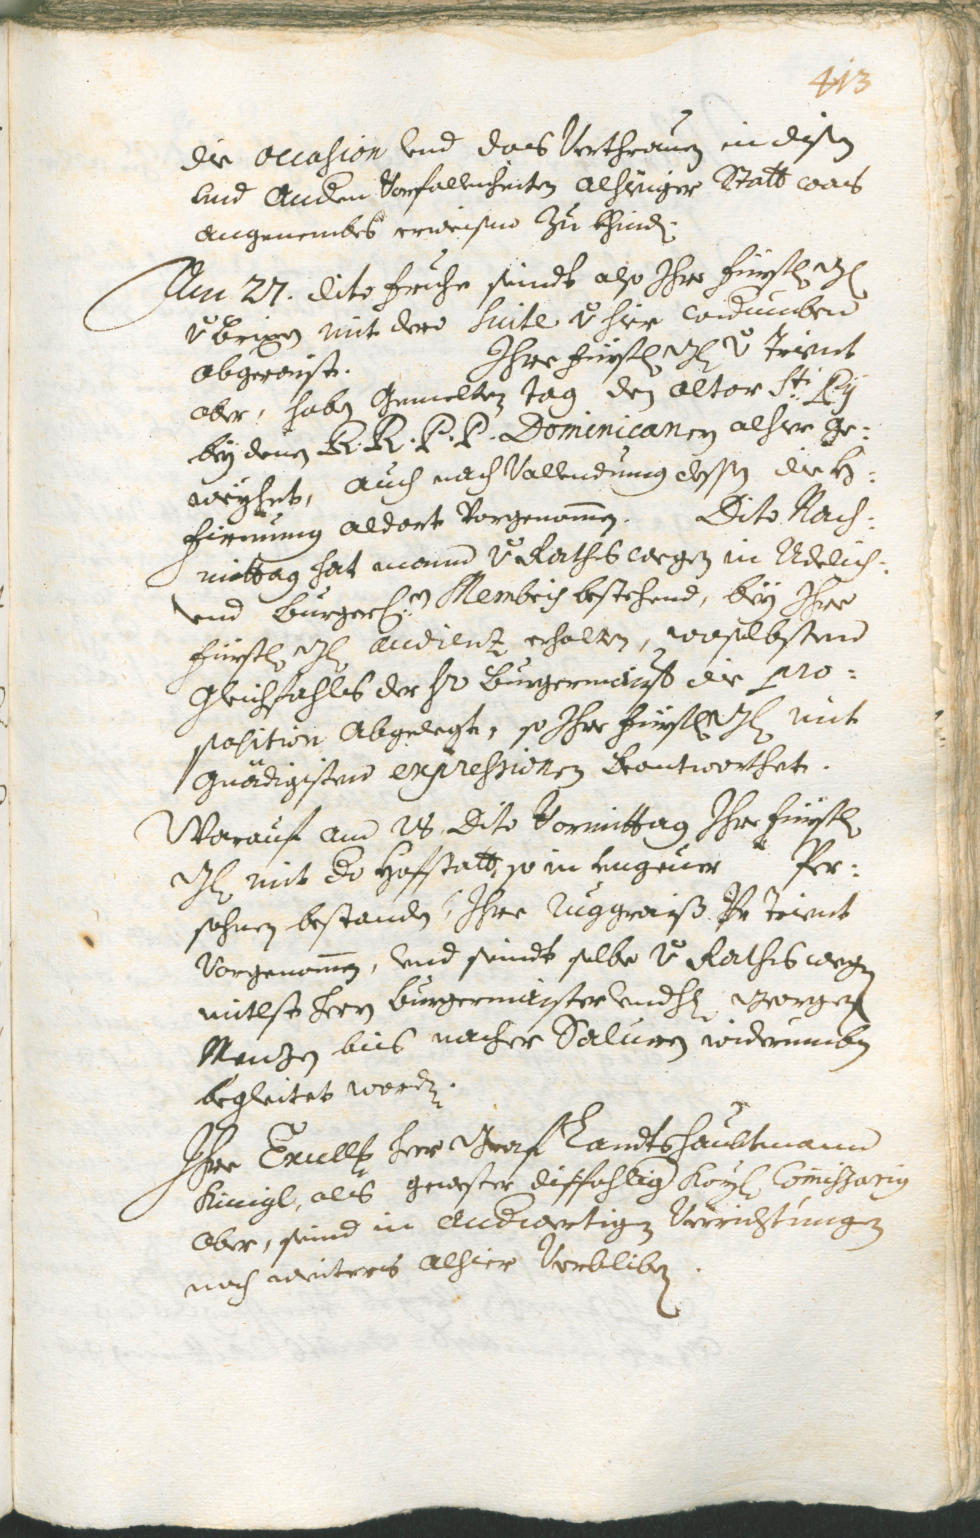 413
die occasion vnd das Verthrauen in disen
und Andern Vorfallenheiten alhieiger Statt was
angenembes erweisen zu khinden.
Am 27. dito fruhe seindt also Ihre fürstl. Gl.
v Brixen mit dero Suite v hier widumben
abgeraist. Ihre fürstl. Gl. v Trient
aber, haben gemelten tag den altar Sti. Pij
bey denen R. R. P. P. Dominicanern alhier ge=
weyhet, auch nach Vollendung dessen die H:
firmung aldort Vorgenommen. Dito Nach=
mittag hat mann v Raths wegen in Adelich=
vnd Burgerl. Membris bestehend, bey Ihre
fürstl. Gl. audienz erhalten, woselbsten
Gleichfahls der Hr Burgermaister die pro=
position Abgelegt, so Ihre fürstl. Gl. mit
Gnädigisten expressionen beantworthet.
Worauf am 28. Dito Vormittag Ihre fürstl.
Gl. mit der Hoffstatt, so in Per=
sohnen bestanden, Ihre ruggraiß Pr Trient
Vorgenommen, vnd seindt selbe v Raths wegen
mitlst herrn Burgermaister vnd H. Georgen
Menzen bis nacher Salurn widerumben
begleitet worden.
Ihre Excell. herr Graf Landtshaubtmann
Künigl, als gewester dissfahlig Kayl. Commissarius
aber, seind in Andwertigen Verrichtungen
noch weiters alhier Verbliben.